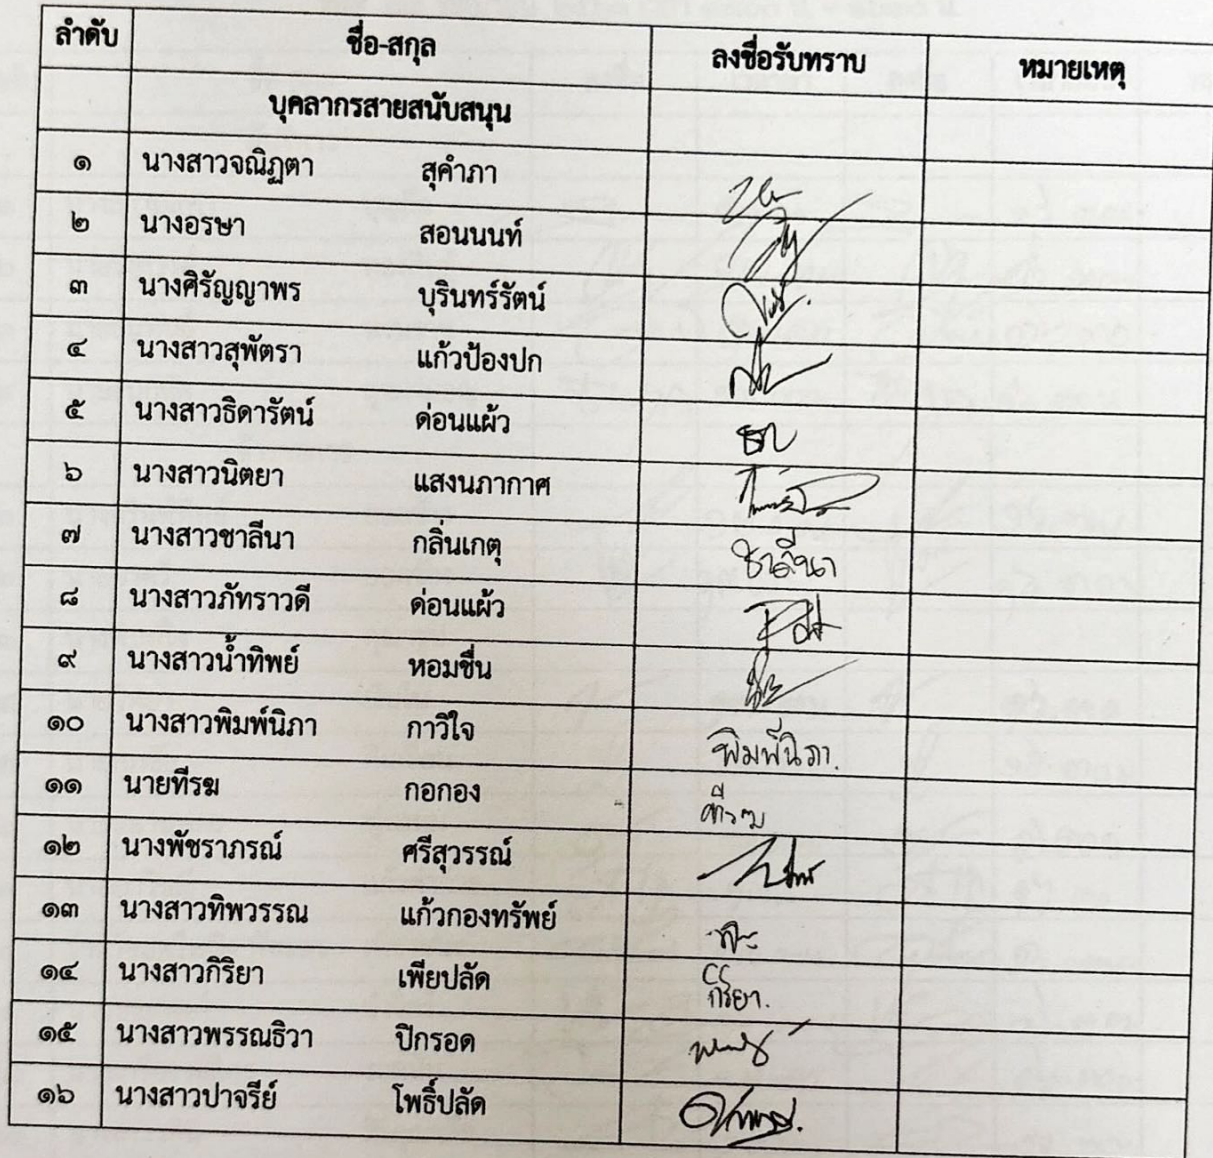 ลำดับ ชื่อ-สกุล ลงชื่อรับทราบ หมายเหตุ
บุคลากรสายสนับสนุน
๑ นางสาวจณิฏตา สุคำภา
๒ นางอรษา สอนนนท์
๓ นางศิรัญญาพร บุรินทร์รัตน์
๔ นางสาวสุพัตรา แก้วป้องปก
๕ นางสาวธิดารัตน์ ด่อนแผ้ว
๖ นางสาวนิตยา แสงนภากาศ
๗ นางสาวชาลีนา กลิ่นเกตุ ชาลีนา
๘ นางสาวภัทราวดี ด่อนแผ้ว
๙ นางสาวน้ำทิพย์ หอมชื่น
๑๐ นางสาวพิมพ์นิภา กาวิใจ พิมพ์นิภา.
๑๑ นายทีรฆ กอกอง ทีรฆ
๑๒ นางพัชราภรณ์ ศรีสุวรรณ์
๑๓ นางสาวทิพวรรณ แก้วกองทรัพย์
๑๔ นางสาวกิริยา เพียปลัด กิริยา.
๑๕ นางสาวพรรณธิวา ปิกรอด
๑๖ นางสาวปาจรีย์ โพธิ์ปลัด